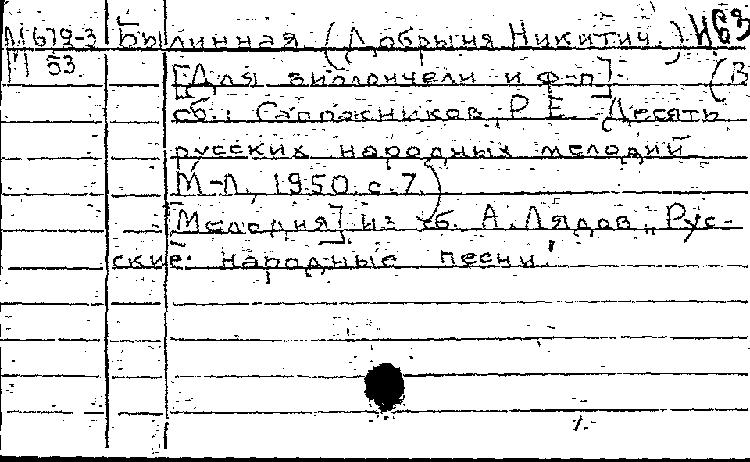 М 679-3 Былинная (Добрыня Никитич.) И63
М 53 [Для виолончели и ф-п] (В
сб.: Сапожников, Р. Е. Десять
русских народных мелодий
М-Л., 1950. с. 7.)
[Мелодия] из сб. А. Лядов „Рус-
ские народные песни"